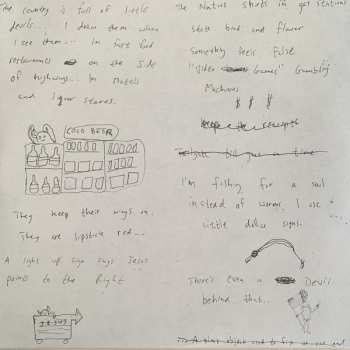 The country is full of little
devils... I draw them when
I see them... In fast food
restaurants on the side
of highways... In Motels
and liquor stores.
COLD BEER
They keep their wings on.
They are lipstick red...
A light up sign says Jesus
points to the Right
JESUS
The Nativs
state bird and flower
Something feels false
"Video Games" Gambling
Machines
$ $ $
I'm fishing for a soul
instead of worms, I use
little dollar signs.
There's even a Devil
behind that..